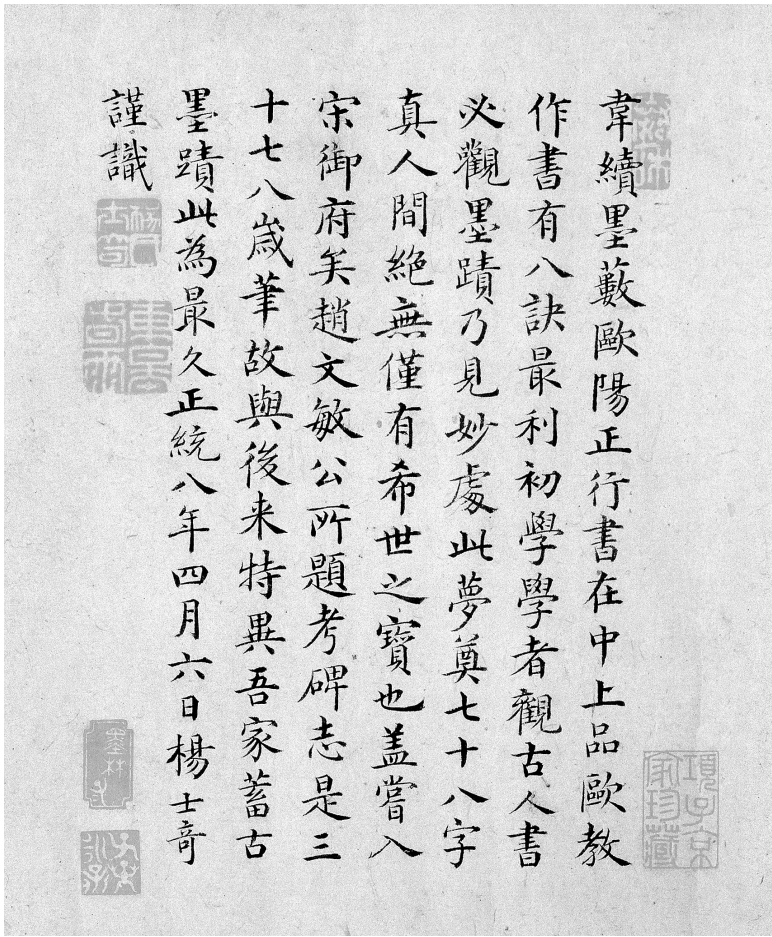 韋續墨藪歐陽正行書在中上品歐教
作書有八訣最利初學學者觀古人書
必觀墨蹟乃見妙處此夢奠七十八字
真人間絕無僅有希世之寶也盖嘗入
宋御府矣趙文敏公所題考碑志是三
十七八歲筆故與後来特異吾家蓄古
墨蹟此為最久正統八年四月六日楊士奇
謹識
項子京
家珍藏